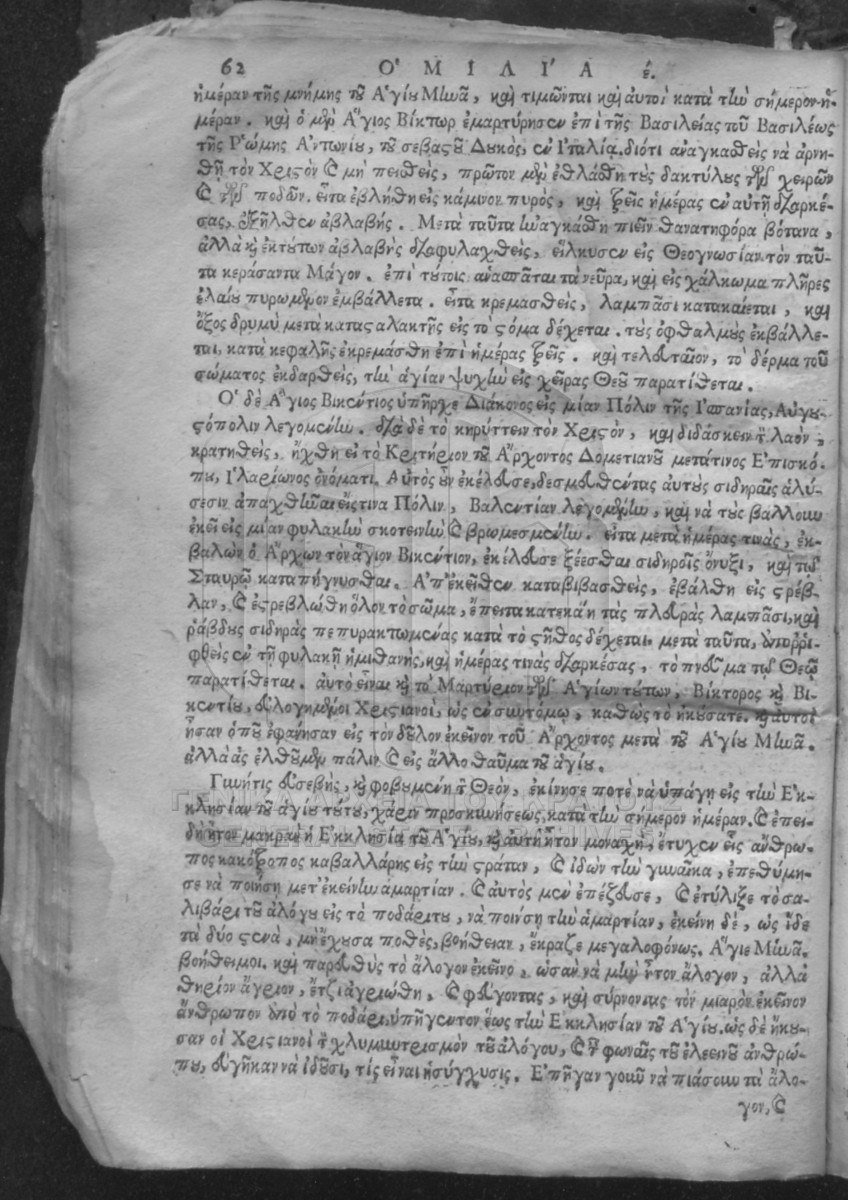 62 Ὁ Μ Ι Λ Ι Ἁ έ.
ἡμέραν τῆς μνήμης τοῦ Ἁγίου Μίωᾶ, καὶ τιμῶνται καὶ αὐτοὶ κατὰ τὴν σήμερον ἡ-
μέραν. καὶ ὁ μὲν Ἅγιος Βίκτωρ ἐμαρτύρησεν ἐπὶ τῆς Βασιλείας τοῦ Βασιλέως
τῆς Ῥώμης Ἀντωνίου, τοῦ σεβαστοῦ Δουκὸς, ἐν Ἰταλίᾳ. διότι ἀναγκασθεὶς νὰ ἀρνη-
θῇ τὸν Χριστὸν καὶ μὴ πεισθεὶς, πρῶτον μὲν ἐθλάσθη τοὺς δακτύλους τῶν χειρῶν
καὶ τῶν ποδῶν. εἶτα ἐβλήθη εἰς κάμινον πυρὸς, καὶ τρεῖς ἡμέρας ἐν αὐτῇ διαρκέ-
σας, ἐξῆλθεν ἀβλαβής. Μετὰ ταῦτα ἠναγκάσθη πιεῖν θανατηφόρα βότανα,
ἀλλὰ καὶ ἐκ τούτων ἀβλαβὴς διαφυλαχθεὶς, εἵλκυσεν εἰς Θεογνωσίαν τὸν ταῦ-
τα κεράσαντα Μάγον. ἐπὶ τούτοις ἀνασπᾶται τὰ νεῦρα, καὶ εἰς χάλκωμα πλῆρες
ἐλαίου πυρωμένον ἐμβάλλεται. εἶτα κρεμασθεὶς, λαμπᾶσι κατακαίεται, καὶ
ὄξος δριμὺ μετὰ κατασταλακτῆς εἰς τὸ στόμα δέχεται. τοὺς ὀφθαλμοὺς ἐκβάλλε-
ται, κατὰ κεφαλῆς ἐκρεμάσθη ἐπὶ ἡμέρας τρεῖς. καὶ τελευταῖον, τὸ δέρμα τοῦ
σώματος ἐκδαρθεὶς, τὴν ἁγίαν ψυχὴν εἰς χεῖρας Θεοῦ παρατίθεται.
Ὁ δὲ Ἅγιος Βικέντιος ὑπῆρχε Διάκονος εἰς μίαν Πόλιν τῆς Ἱσπανίας, Αὐγου-
στόπολιν λεγομένην. διὰ δὲ τὸ κηρύττειν τὸν Χριστὸν, καὶ διδάσκειν τὸν λαὸν,
κρατηθεὶς, ἤχθη εἰ τὸ Κριτήριον τοῦ Ἄρχοντος Δομετιανοῦ μετά τινος Ἐπισκό-
που, Ἱλαρίωνος ὀνόματι. Αὐτὸς οὖν ἐκέλευσε, δεσμευθέντας αὐτοὺς σιδηραῖς ἁλύ-
σεσιν ἀπαχθῆναι εἴς τινα Πόλιν, Βαλεντίαν λεγομένην, καὶ νὰ τοὺς βάλλουν
ἐκεῖ εἰς μίαν φυλακὴν σκοτεινὴν καὶ βρωμεσμένην. εἶτα μετὰ ἡμέρας τινὰς, ἐκ-
βαλὼν ὁ Ἄρχων τὸν ἅγιον Βικέντιον, ἐκέλευσε ξέεσθαι σιδηροῖς ὄνυξι, καὶ τῷ
Σταυρῷ καταπήγνυσθαι. Ἀπ' ἐκεῖθεν καταβιβασθεὶς, ἐβάλθη εἰς στρέβ-
λαν, καὶ ἐστρεβλώθη ὅλον τὸ σῶμα, ἔπειτα κατεκάη τὰς πλευρὰς λαμπᾶσι, καὶ
ῥάβδους σιδηρὰς πεπυρακτωμένας κατὰ τὸ στῆθος δέχεται. μετὰ ταῦτα, ἀποῤῥι-
φθεὶς ἐν τῇ φυλακῇ ἡμιθανὴς, καὶ ἡμέρας τινὰς διαρκέσας, τὸ πνεῦμα τῷ Θεῷ
παρατίθεται. αὐτὸ εἶναι καὶ τὸ Μαρτύριον τῶν Ἁγίων τούτων, Βίκτορος καὶ Βι-
κεντίου, εὐλογημένοι Χριστιανοὶ, ὡς ἐν συντόμῳ, καθὼς τὸ ἠκούσατε. καὶ αὐτοὶ
ἦσαν ὁποῦ ἐφάνησαν εἰς τὸν δοῦλον ἐκεῖνον τοῦ Ἄρχοντος μετὰ τοῦ Ἁγίου Μίωᾶ.
ἀλλὰ ἂς ἐλθοῦμεν πάλιν καὶ εἰς ἄλλο θαῦμα τοῦ ἁγίου.
Γυνή τις εὐσεβὴς, καὶ φοβουμένη τὸν Θεὸν, ἐκίνησε ποτὲ νὰ ὑπάγῃ εἰς τὴν Ἐκ-
κλησίαν τοῦ ἁγίου τούτου, χάριν προσκυνήσεως, κατὰ τὴν σήμερον ἡμέραν. καὶ ἐπει-
δὴ ἦτον μακρὰν ἡ Ἐκκλησία τοῦ Ἁγίου, καὶ αὐτὴ ἦτον μοναχὴ, ἔτυχεν εἷς ἄνθρω-
πος κακότροπος καβαλλάρης εἰς τὴν στράταν, καὶ ἰδὼν τὴν γυναῖκα, ἐπεθύμη-
σε νὰ ποιήσῃ μετ' ἐκείνην ἁμαρτίαν. καὶ αὐτὸς μὲν ἐπέζευσε, καὶ ἐτύλιξε τὸ σα-
λιβάρι τοῦ ἀλόγου εἰς τὸ ποδάρι του, νὰ ποιήσῃ τὴν ἁμαρτίαν, ἐκείνη δὲ, ὡς ἴδε
τὰ δύο στενὰ, μὴν ἔχουσα ποθὲς, βοήθειαν, ἔκραζε μεγαλοφώνως. Ἅγιε Μίωᾶ,
βοήθει μοι. καὶ παρευθὺς τὸ ἄλογον ἐκεῖνο, ὡσὰν νὰ μὴν ἦτον ἄλογον, ἀλλὰ
θηρίον ἄγριον, ἔτζι ἀγριώθη, καὶ φεύγοντας, καὶ σύρνοντας τὸν μιαρὸν ἐκεῖνον
ἄνθρωπον ἀπὸ τὸ ποδάρι, ὑπήγεντον ἕως τὴν Ἐκκλησίαν τοῦ Ἁγίου. ὡς δὲ ἤκου-
σαν οἱ Χριστιανοὶ τὸν χλυμιντρισμὸν τοῦ ἀλόγου, καὶ τὰς φωναῖς τοῦ ἐλεεινοῦ ἀνθρώ-
που, εὐγῆκαν νὰ ἰδοῦσι, τίς εἶναι ἡ σύγχυσις. Ἐπῆγαν γοῦν νὰ πιάσουν τὰ ἄλο-
γον, καὶ